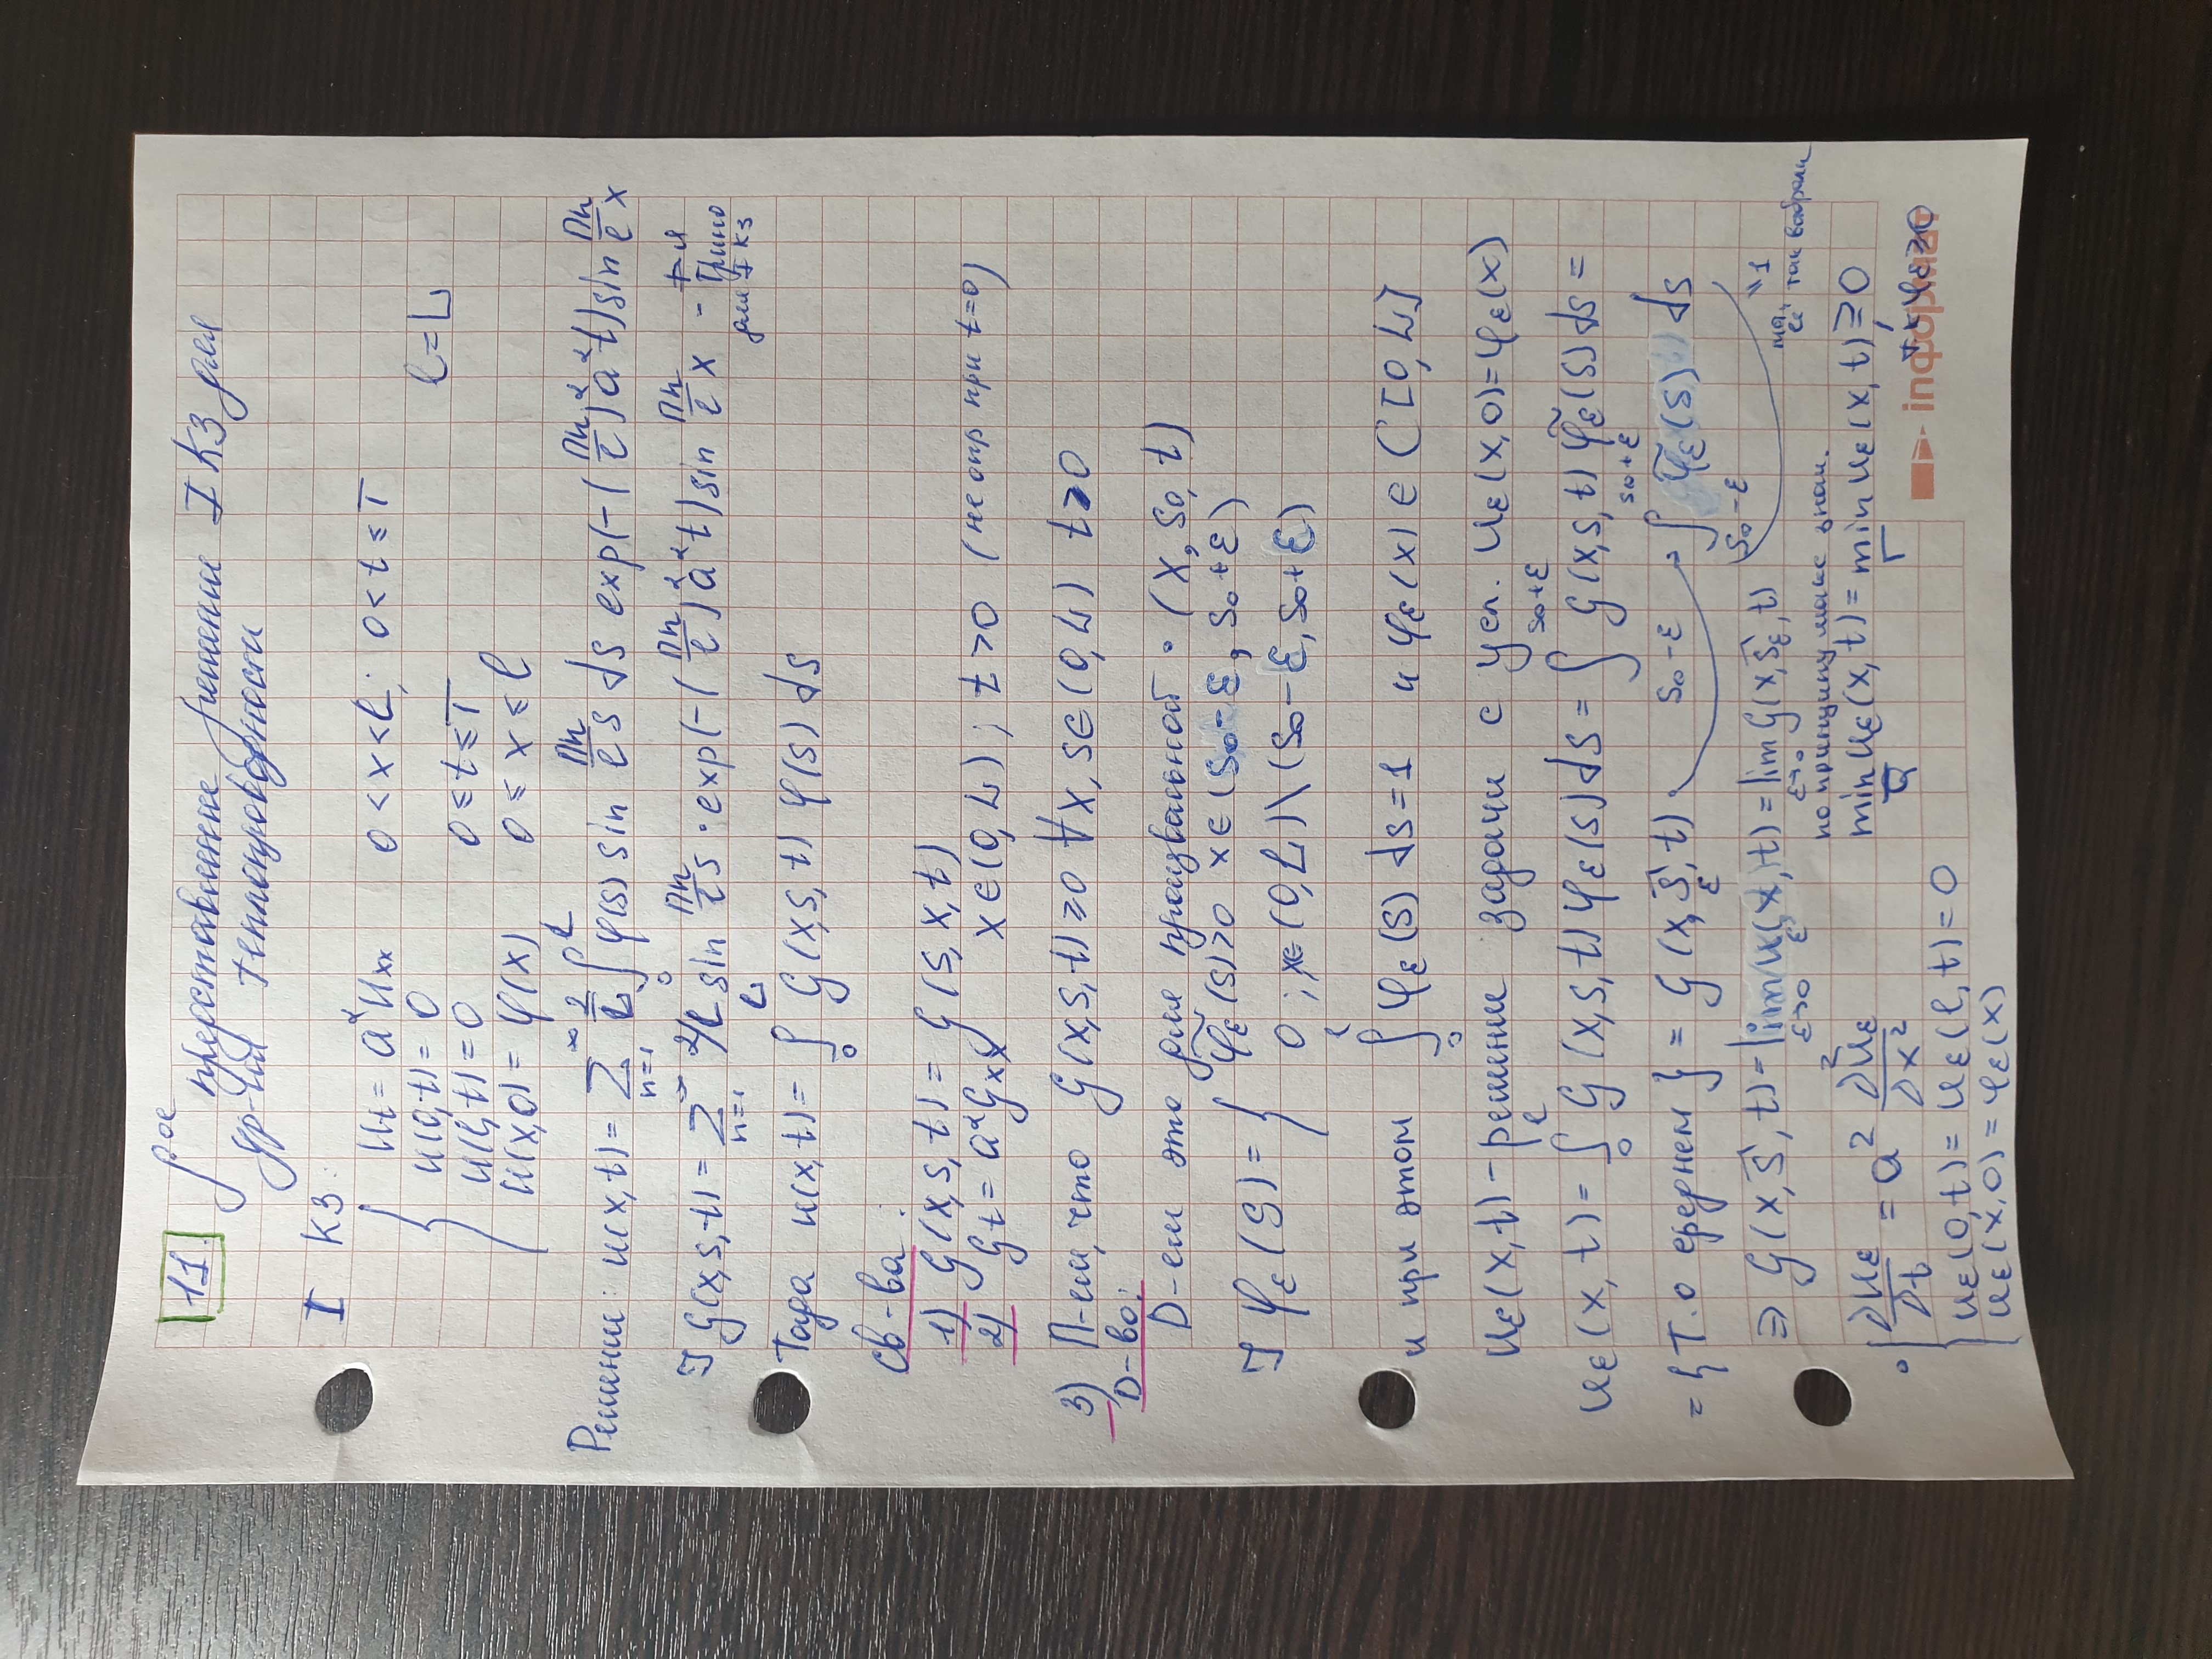 11. ∫ое представление решения I КЗ для
ур-ния теплопроводности
I КЗ:
{ Ut = a²Uxx   0 < x < l; 0 < t ≤ T
u(0,t) = 0   l = L
u(l,t) = 0   0 ≤ t ≤ T
u(x,0) = φ(x)   0 ≤ x ≤ l
Решение: u(x,t) = ∑ n=1 ∞ 2/L ∫₀ˡ φ(s) sin πn/l s ds exp(-(πn/l)² a² t) sin πn/l x
J G(x,s,t) = ∑ n=1 ∞ 2/L sin πn/l s · exp(-(πn/l)² a² t) sin πn/l x - ф-я Грина для I КЗ
Тогда u(x,t) = ∫₀ᴸ G(x,s,t) φ(s) ds
Св-ва:
1) G(x,s,t) = G(s,x,t)
2) Gt = a²Gxx   x ∈ (0,L); t > 0 (не опр при t=0)
3) П-ем, что G(x,s,t) ≥ 0 ∀x,s ∈ (0,L) t > 0
D-во:
D-ем это для произвольной • (x, s₀, t)
J φε(s) = { φ̃ε(s) > 0 x ∈ (s₀-ε, s₀+ε)
0 ; x ∈ (0,L) \ (s₀-ε, s₀+ε)
и при этом ∫₀ˡ φε(s) ds = 1 и φε(x) ∈ C[0,L]
uε(x,t) - решение задачи с усл. uε(x,0) = φε(x)
uε(x,t) = ∫₀ˡ G(x,s,t) φε(s) ds = ∫ s₀-ε s₀+ε G(x,s,t) φ̃ε(s) ds =
= { Т. о среднем } = G(x, s̄ε, t) · ∫ s₀-ε s₀+ε φ̃ε(s) ds
"1 так выбрали
⇒ G(x,s̄,t) = lim ε→0 uε(x,t) = lim ε→0 G(x,s̄ε,t)
по принципу макс знач.
min Q̄ uε(x,t) = min Γ uε(x,t) ≥ 0
т.к. φε ≥ 0
• { ∂uε/∂t = a² ∂²uε/∂x²
uε(0,t) = uε(l,t) = 0
uε(x,0) = φε(x)
informat